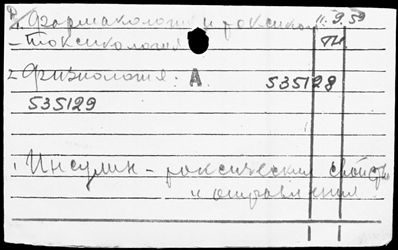 Фармакология и токсикол. 11. 9. 59
— Токсикология ТИ
2 Физиология. А 535128
535129
1 Инсулин — токсические свойства
и отравления